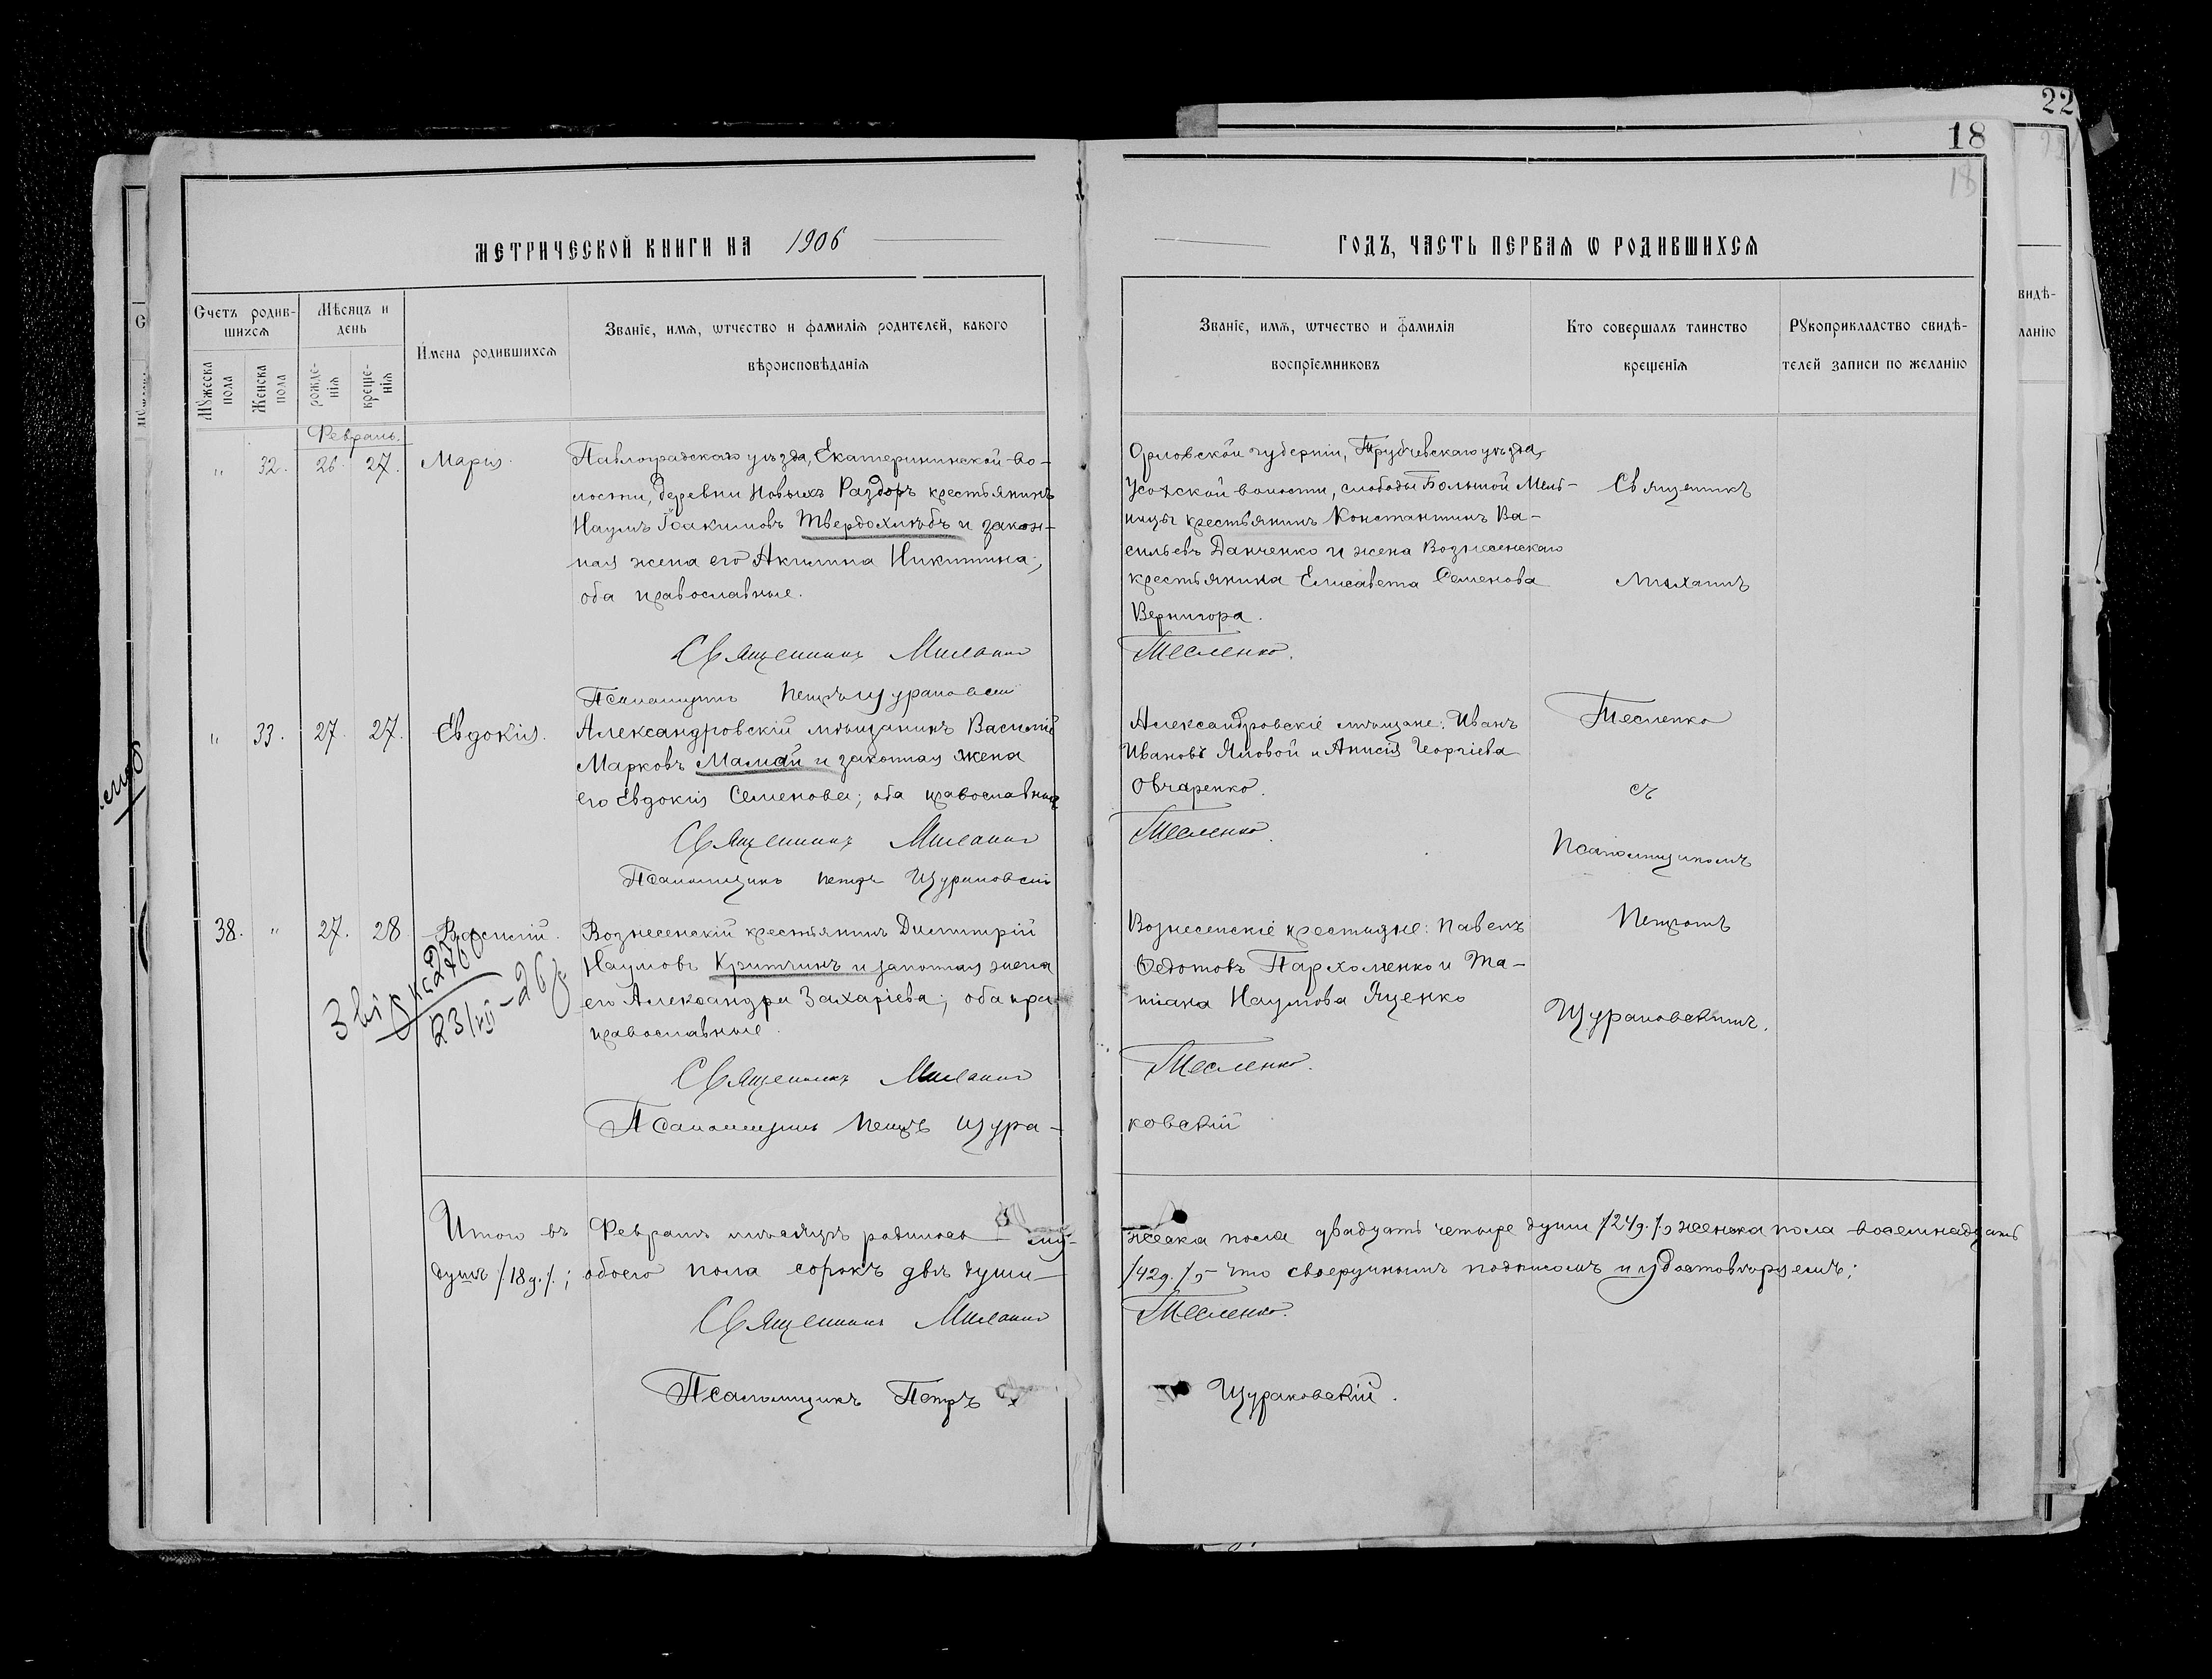 22
18
18
МЕТРИЧЕСКОЙ КНИГИ НА 1906
ГОДЪ, ЧАСТЬ ПЕРВАЯ Ѡ РОДИВШИХСЯ
Счетъ родив-
шихся
Мѣсяцъ и
день
Мужеска
пола
Женска
пола
рожде-
нія
креще-
нія
Имена родившихся
Званіе, имя, ѡтчество и фамилія родителей, какого
вѣроисповѣданія
Званіе, имя, ѡтчество и фамилія
воспріемниковъ
Кто совершалъ таинство
крещенія
Рукоприкладство свидѣ-
телей записи по желанію
видѣ-
ланію
Февраль.
" 32. 26. 27. Марія.
Павлоградскаго уѣзда, Екатерининской во-
лости, деревни Новыхъ Раздоръ крестьянинъ
Наумъ Іоакимовъ Твердохлѣбъ и закон-
ная жена его Акилина Никитина,
оба православные.
Священникъ Михаилъ
Псаломщикъ Петръ Щураковскій
Орловской губерніи, Трубчевскаго уѣзда,
Усохской волости, слободы Большой Мель-
ницы крестьянинъ Константинъ Ва-
сильевъ Данченко и жена Вознесенскаго
крестьянина Елисавета Семенова
Вернигора.
Тесленко.
Священникъ
Михаилъ
Тесленко
съ
Псаломщикомъ
Петромъ
Щураковскимъ.
" 33. 27. 27. Евдокія.
Александровскій мѣщанинъ Василій
Марковъ Мамай и законная жена
его Евдокія Семенова; оба православные
Священникъ Михаилъ
Псаломщикъ Петръ Щураковскій
Александровскіе мѣщане: Иванъ
Ивановъ Яловой и Анисія Георгіева
Овчаренко.
Тесленко.
38. " 27. 28 Василій.
Вознесенскій крестьянинъ Димитрій
Наумовъ Критчинъ и законная жена
его Александра Захаріева; оба пра-
православные.
Священникъ Михаилъ
Псаломщикъ Петръ Щура-
Вознесенскіе крестьяне: Павелъ
Ѳедотовъ Пархоменко и Та-
тіана Наумова Яценко
Тесленко.
ковскій
23/VII-26
Итого въ Февралѣ мѣсяцѣ родилось му-
жеска пола двадцать четыре души /24д./, женска пола восемнадцать
душъ /18д./; обоего пола сорокъ двѣ души
/42д./, - что своеручнымъ подписомъ и удостовѣряемъ:
Священникъ Михаилъ Тесленко.
Псаломщикъ Петръ Щураковскій.